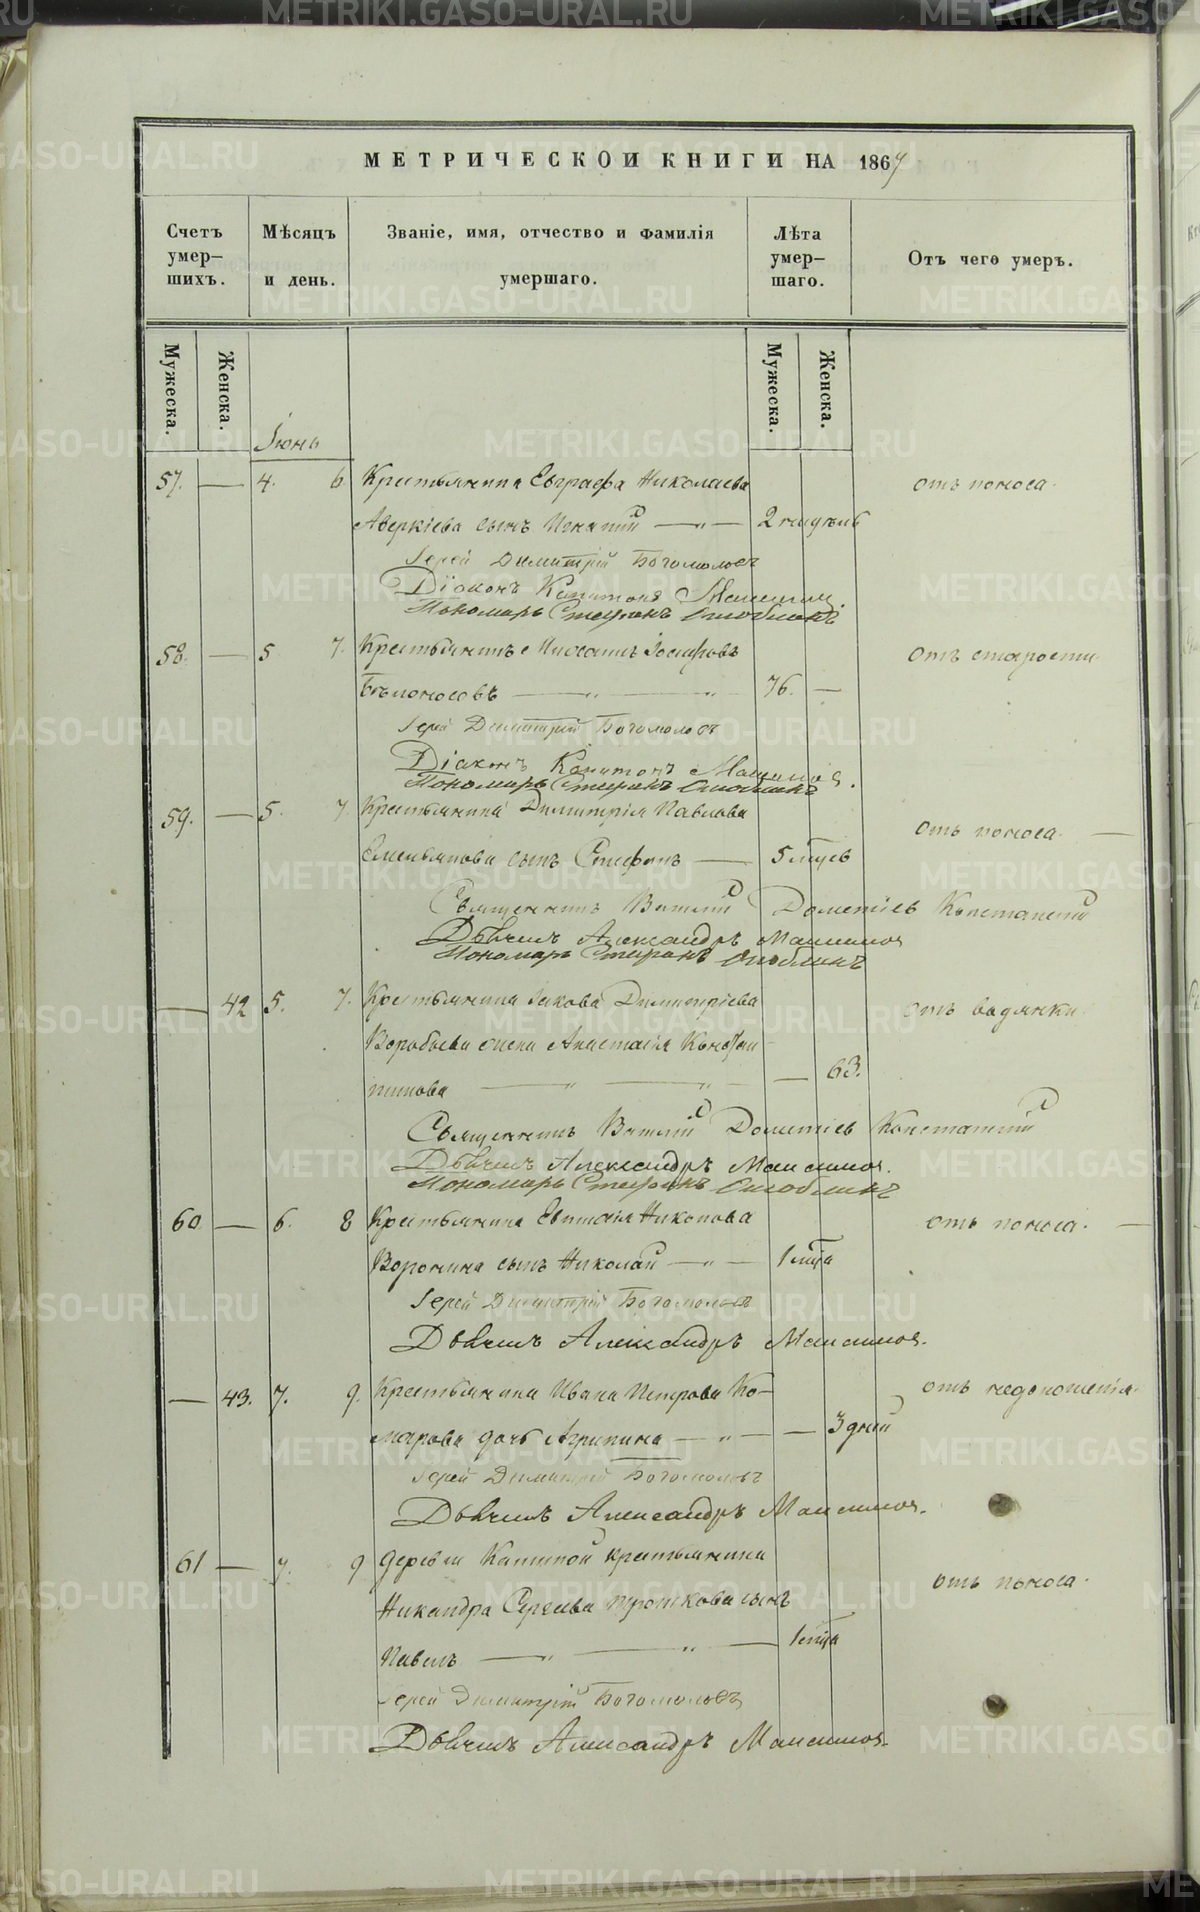 МЕТРИЧЕСКОЙ КНИГИ НА 1867
Счетъ умер-шихъ.
Мѣсяцъ и день.
Званіе, имя, отчество и фамилія умершаго.
Лѣта умер-шаго.
Отъ чего умеръ.
Мужеска.
Женска.
Мужеска.
Женска.
Іюнь
57. — 4. 6. Крестьянина Евграфа Николаева отъ поноса.
Аверкіева сынъ Игнатій — „ — 2 недѣль
Іерей Димитрій Богомоловъ
Діаконъ Капитонъ
Пономарь Стефанъ Оглоблинъ
58. — 5 7. Крестьянинъ Іосифовъ отъ старости.
Бѣлоносовъ — „ — „ — 76. —
Іерей Димитрій Богомоловъ
Діаконъ Капитонъ
Пономарь Стефанъ Оглоблинъ
59. — 5. 7. Крестьянина Димитрія Павлова отъ поноса. —
Емельянова сынъ Стефанъ — 5 мцевъ
Священникъ Дометіевъ
Дьячекъ Александръ Максимов
Пономарь Стефанъ Оглоблинъ
— 42 5. 7. Крестьянина Іакова Димитріева отъ водянки.
Воробьева жена Анастасія Констан-
тинова — „ — „ — — 63.
Священникъ Дометіевъ
Дьячекъ Александръ Максимов.
Пономарь Стефанъ Оглоблинъ
60. — 6. 8 Крестьянина отъ поноса. —
Воронина сынъ Николай — „ — 1 мца
Іерей Димитрій Богомоловъ
Дьячекъ Александръ Максимов.
— 43. 7. 9. Крестьянина Ивана Петрова Ко- отъ недоношенія.
марова дочь Агрипина — „ — — 3 дней
Іерей Димитрій Богомоловъ
Дьячекъ Александръ Максимов.
61 — 7. 9 Деревни крестьянина отъ поноса.
Никандра Сергеева сынъ
Павелъ — „ — „ — 1 мца
Іерей Димитрій Богомоловъ
Дьячекъ Александръ Максимов.
METRIKI.GASO-URAL.RU